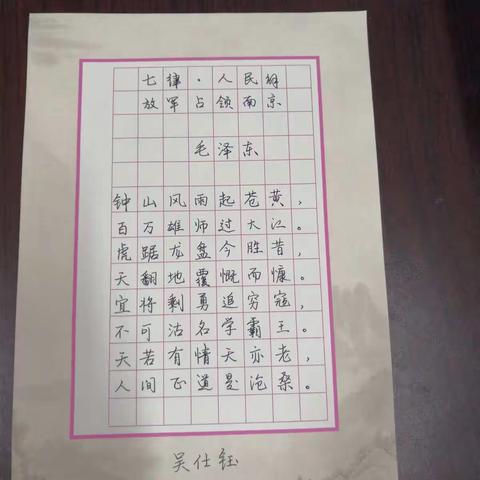 七律·人民解
放军占领南京
毛泽东
钟山风雨起苍黄，
百万雄师过大江。
虎踞龙盘今胜昔，
天翻地覆慨而慷。
宜将剩勇追穷寇，
不可沽名学霸王。
天若有情天亦老，
人间正道是沧桑。
吴仕钰